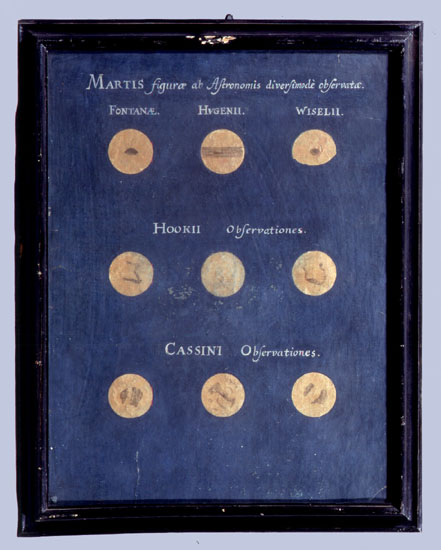 MARTIS figuræ ab Astronomis diversimodè observatæ.
FONTANÆ. HVGENII. WISELII.
HOOKII Observationes.
CASSINI Observationes.